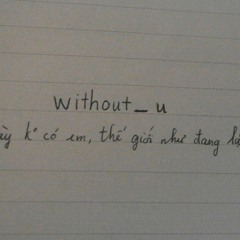 without_u
ày k° có em, thế giới như đang